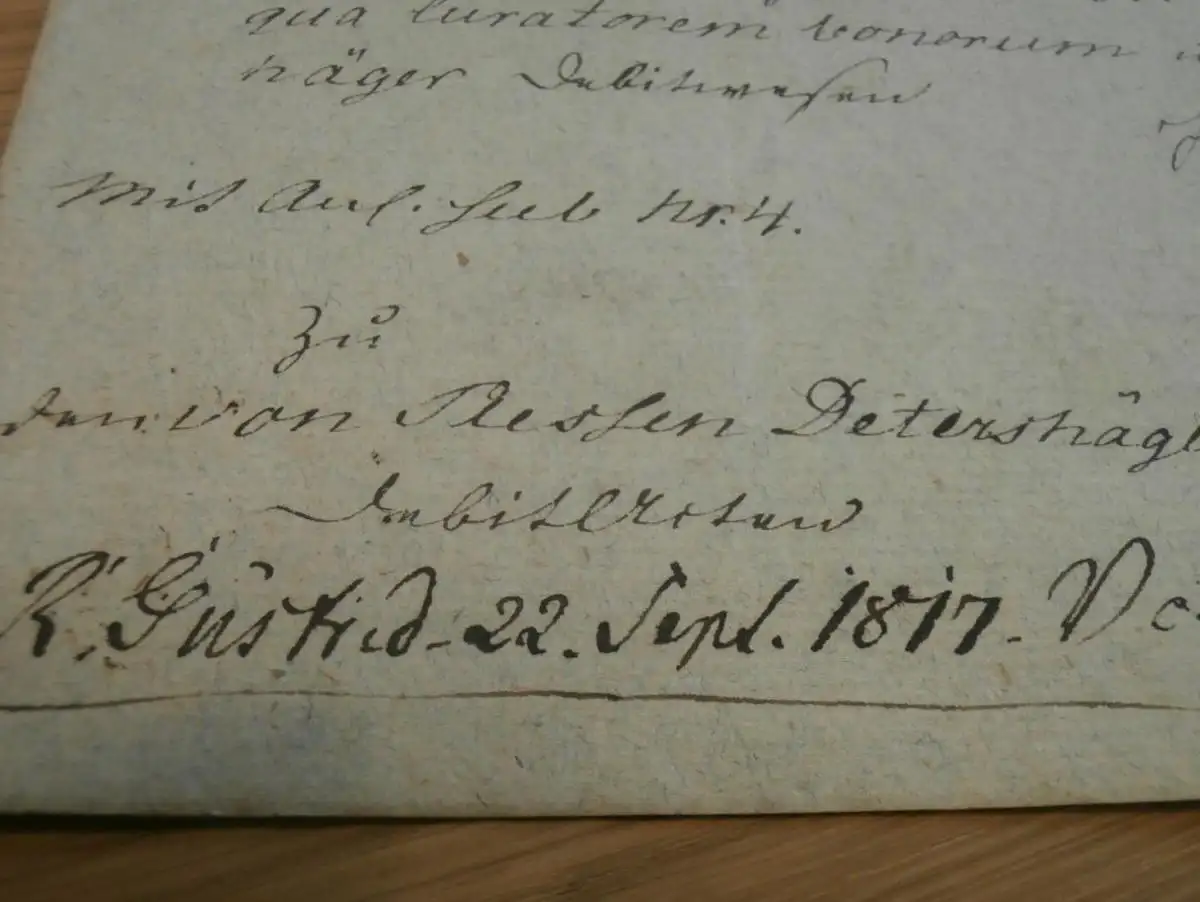 qua Curatorem bonorum
häger Debitwesen
Mit Anl. sub Nr. 4.
Zu
den von Plessen Detershäg
Debit Acten
R. Güstrow 22. Sept. 1817.